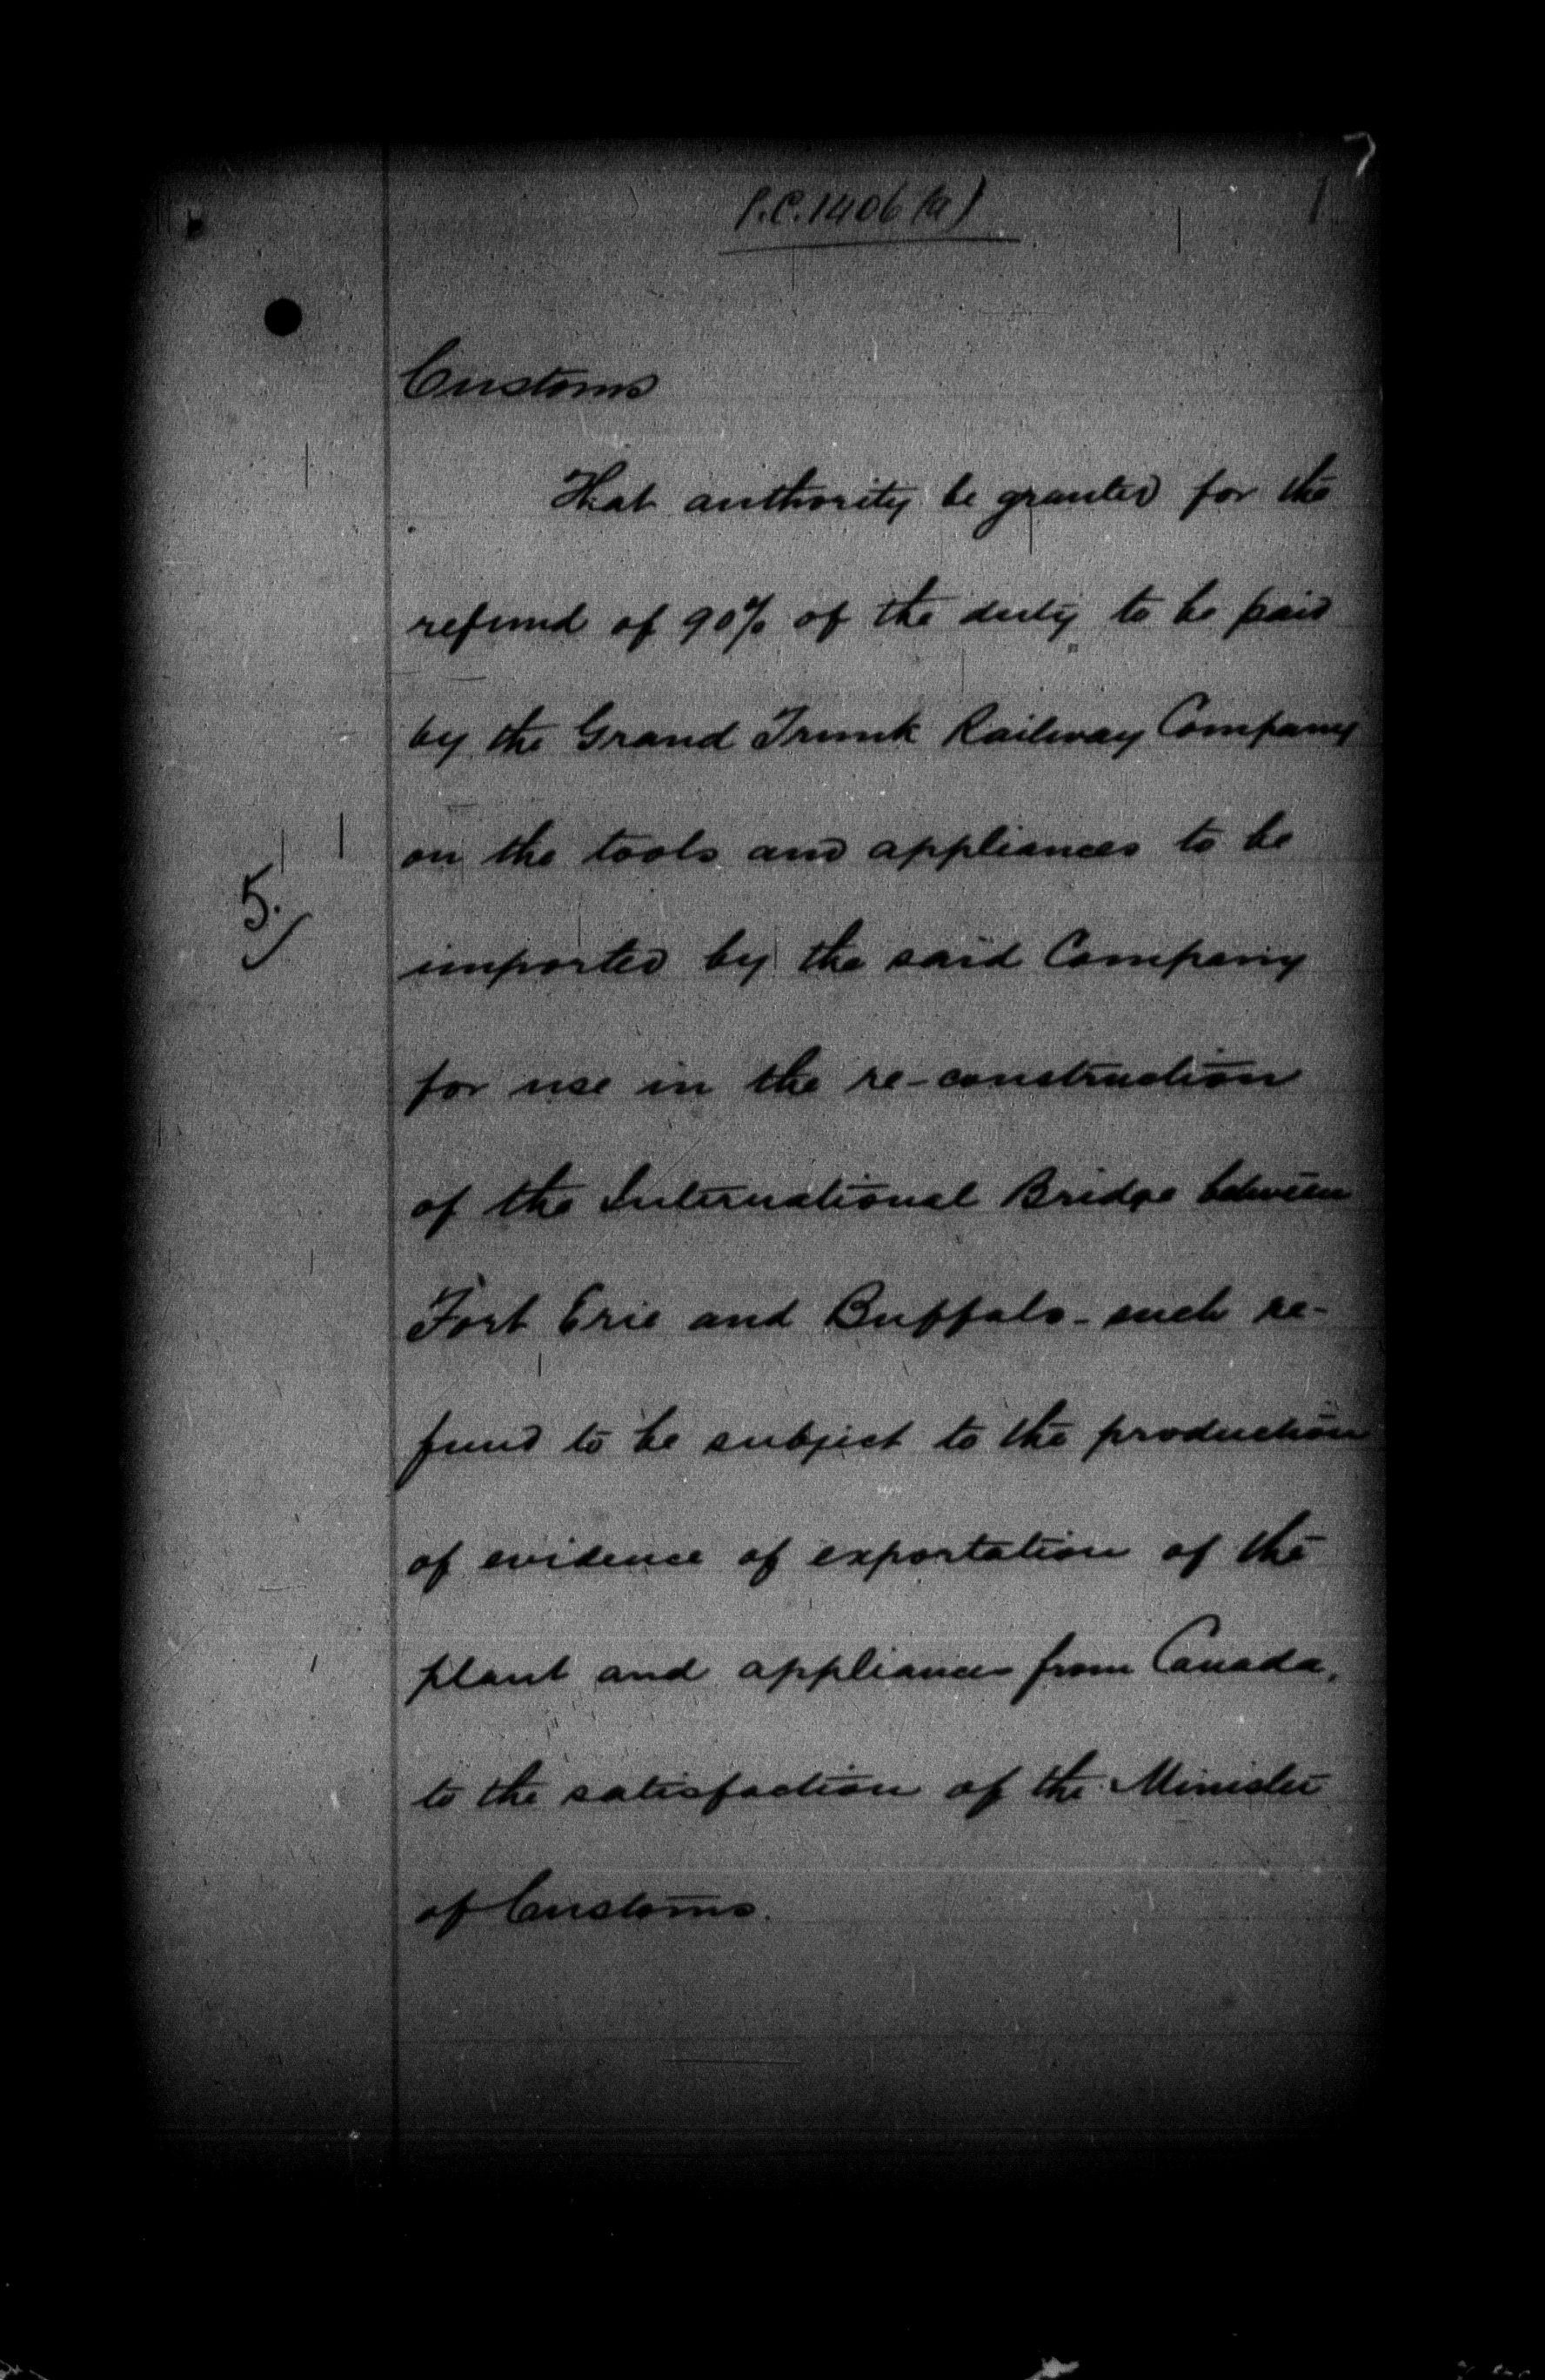 P.C. 1406 (a)
Customs
That authority be granted for the
refund of 90% of the duty to be paid
by the Grand Trunk Railway Company
on the tools and appliances to be
5.
imported by the said Company
for use in the re-construction
of the International Bridge between
Fort Erie and Buffalo - such re-
fund to be subject to the production
of evidence of exportation of the
plant and appliances from Canada,
to the satisfaction of the Minister
of Customs.